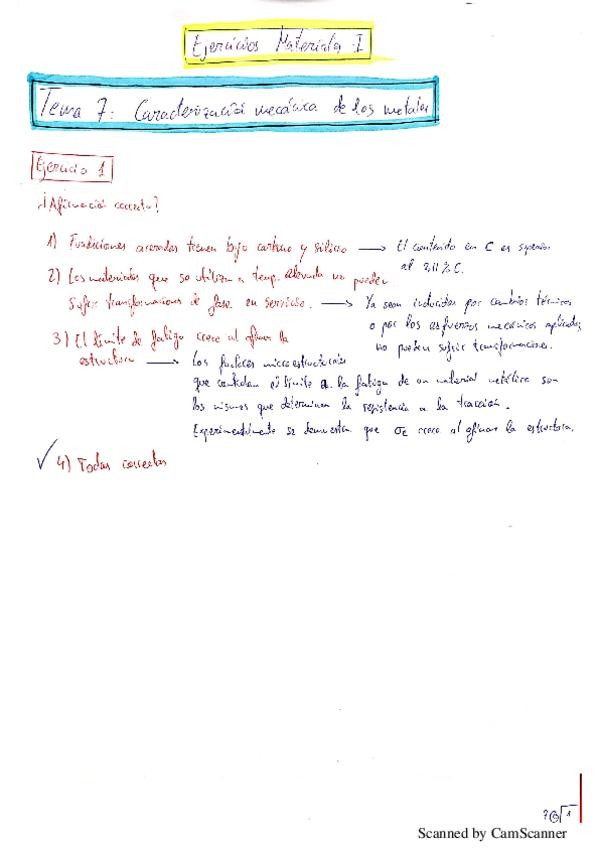 Ejercicios Materiales I
Tema 7: Caracterización mecánica de los metales
Ejercicio 1
¿Afirmación correcta?
1) Fundiciones aceradas tienen bajo carbono y silicio → El contenido en C es superior
al 2,11% C.
2) Los materiales que se utilizan a temp. elevada no pueden
sufrir transformaciones de fase en servicio. → Ya sean inducidas por cambios térmicos
o por los esfuerzos mecánicos aplicados,
no pueden sufrir transformaciones.
3) El límite de fatiga crece al afinar la
estructura → Los factores microestructurales
que controlan el límite a la fatiga de un material metálico son
los mismos que determinan la resistencia a la tracción.
Experimentalmente se demuestra que σe crece al afinar la estructura.
✓ 4) Todas correctas
1
Scanned by CamScanner